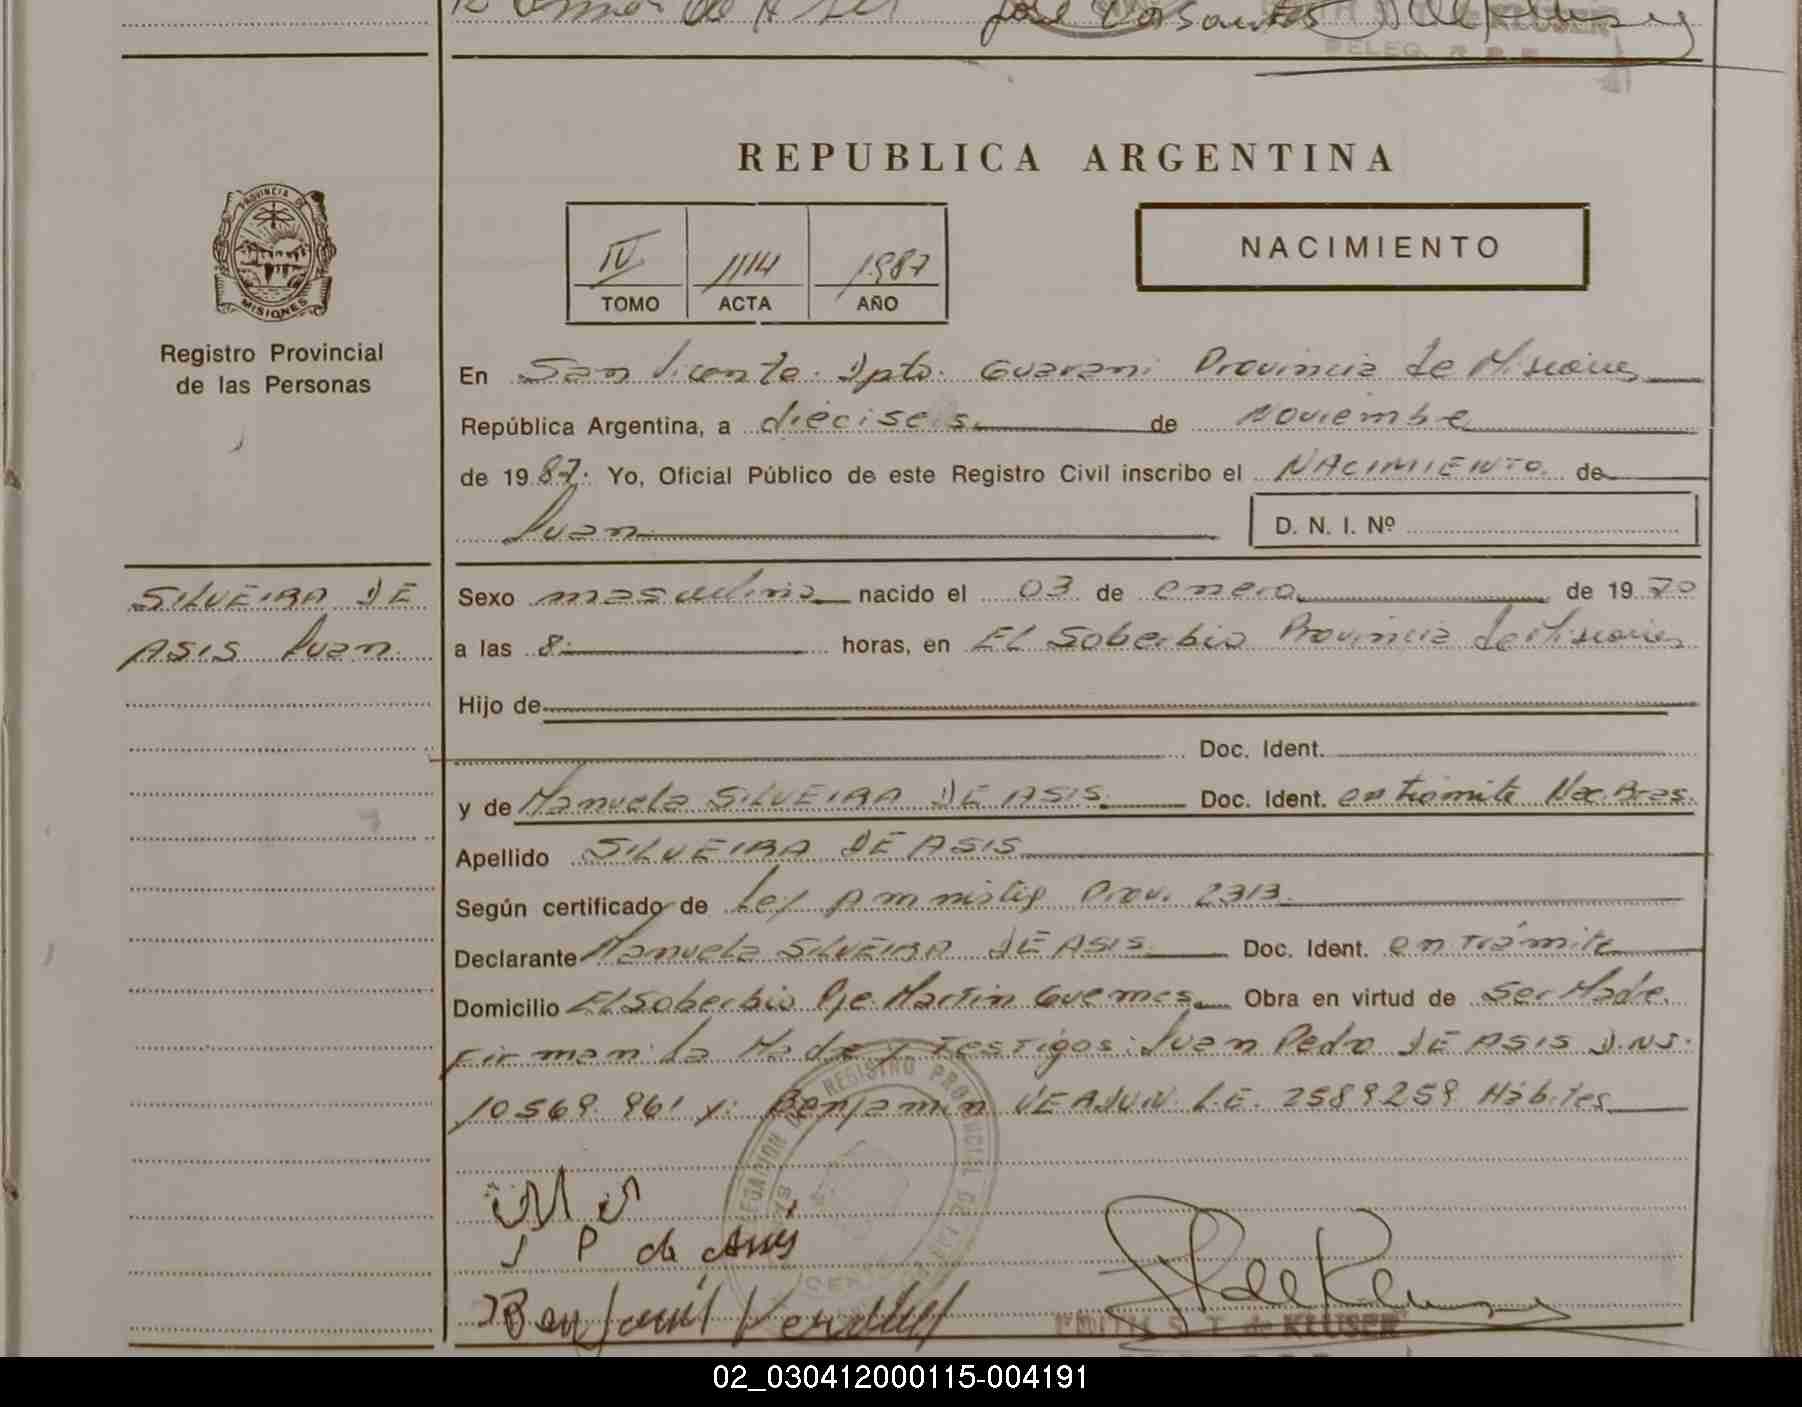 José Casantos
DELEG.
REPUBLICA ARGENTINA
PROVINCIA DE
MISIONES
Registro Provincial
de las Personas
IV 1114 1987
TOMO ACTA AÑO
NACIMIENTO
En San Vicente Dpto. Guarani Provincia de Misiones
República Argentina, a dieciseis de Noviembre
de 1987. Yo, Oficial Público de este Registro Civil inscribo el NACIMIENTO de
Juan D. N. I. Nº
SILVEIRA DE
ASIS Juan
Sexo masculino nacido el 03 de enero de 1970
a las 8 horas, en El Soberbio Provincia de Misiones
Hijo de
Doc. Ident.
y de Manuela SILVEIRA DE ASIS Doc. Ident. en trámite Nac. Bras.
Apellido SILVEIRA DE ASIS
Según certificado de Ley Amnistia Prov. 2313
Declarante Manuela SILVEIRA DE ASIS Doc. Ident. en trámite
Domicilio El Soberbio Pje. Martin Guemes Obra en virtud de Ser Madre
Firman la Madre y Testigos: Juan Pedro DE ASIS D.N.I.
10569.961 y: Benjamin L.E. 2589259 Hábiles
REGISTRO PROVINCIAL DE
M S
J P de Asis
Benjamin
S. T. de KLUSER
02_030412000115-004191